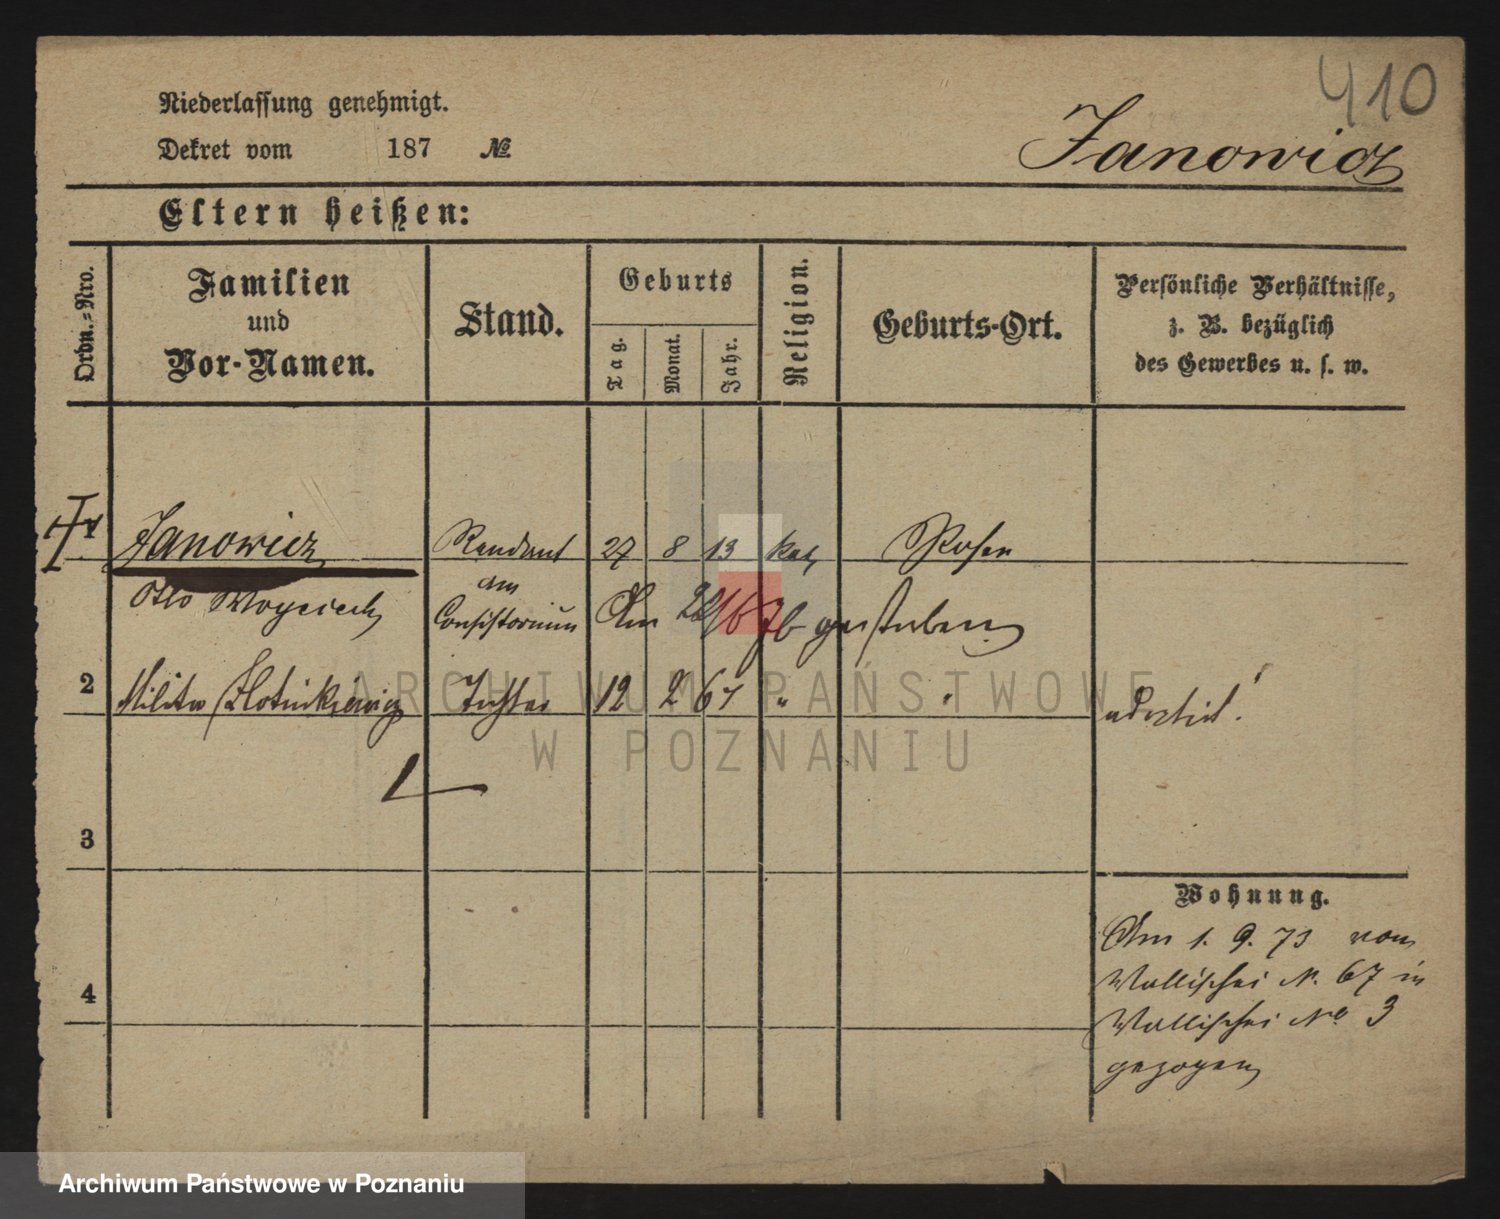 410
Niederlassung genehmigt.
Dekret vom 187 №
Janowicz
Eltern heißen:
Ordn.-Nro.
Familien
und
Vor-Namen.
Stand.
Geburts
Tag.
Monat.
Jahr.
Religion.
Geburts-Ort.
Persönliche Verhältnisse,
z. B. bezüglich
des Gewerbes u. s. w.
Janowicz Rendant 27 8 13 kat, Posen
Otto Woyciech am
Consistorium Am 22/6 76 gestorben
2 Zlotnikiewicz Tochter 12 2 67 " "
adoptirt!
3
4
Wohnung.
Am 1. 9. 73 von
Wallischei N. 67 in
Wallischei No 3
gezogen
ARCHIWUM PAŃSTWOWE
W POZNANIU
Archiwum Państwowe w Poznaniu